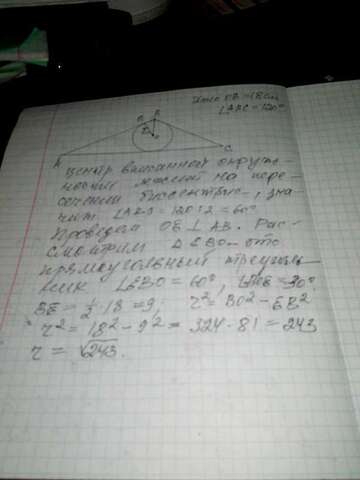 OB = 18см
∠ABC = 120°
B
A
C
Центр вписанной окруж-
ности лежит на пере-
сечении биссектрис, зна-
чит ∠ = 120:2 = 60°
Проведем OE ⊥ AB. Рас-
смотрим ΔEBO - это
прямоугольный треуголь-
ник ∠EBO = 60°, ∠BOE = 30°.
BE = ½·18 = 9, r² = BO² - EB²
r² = 18² - 9² = 324 - 81 = 243
r = √243.